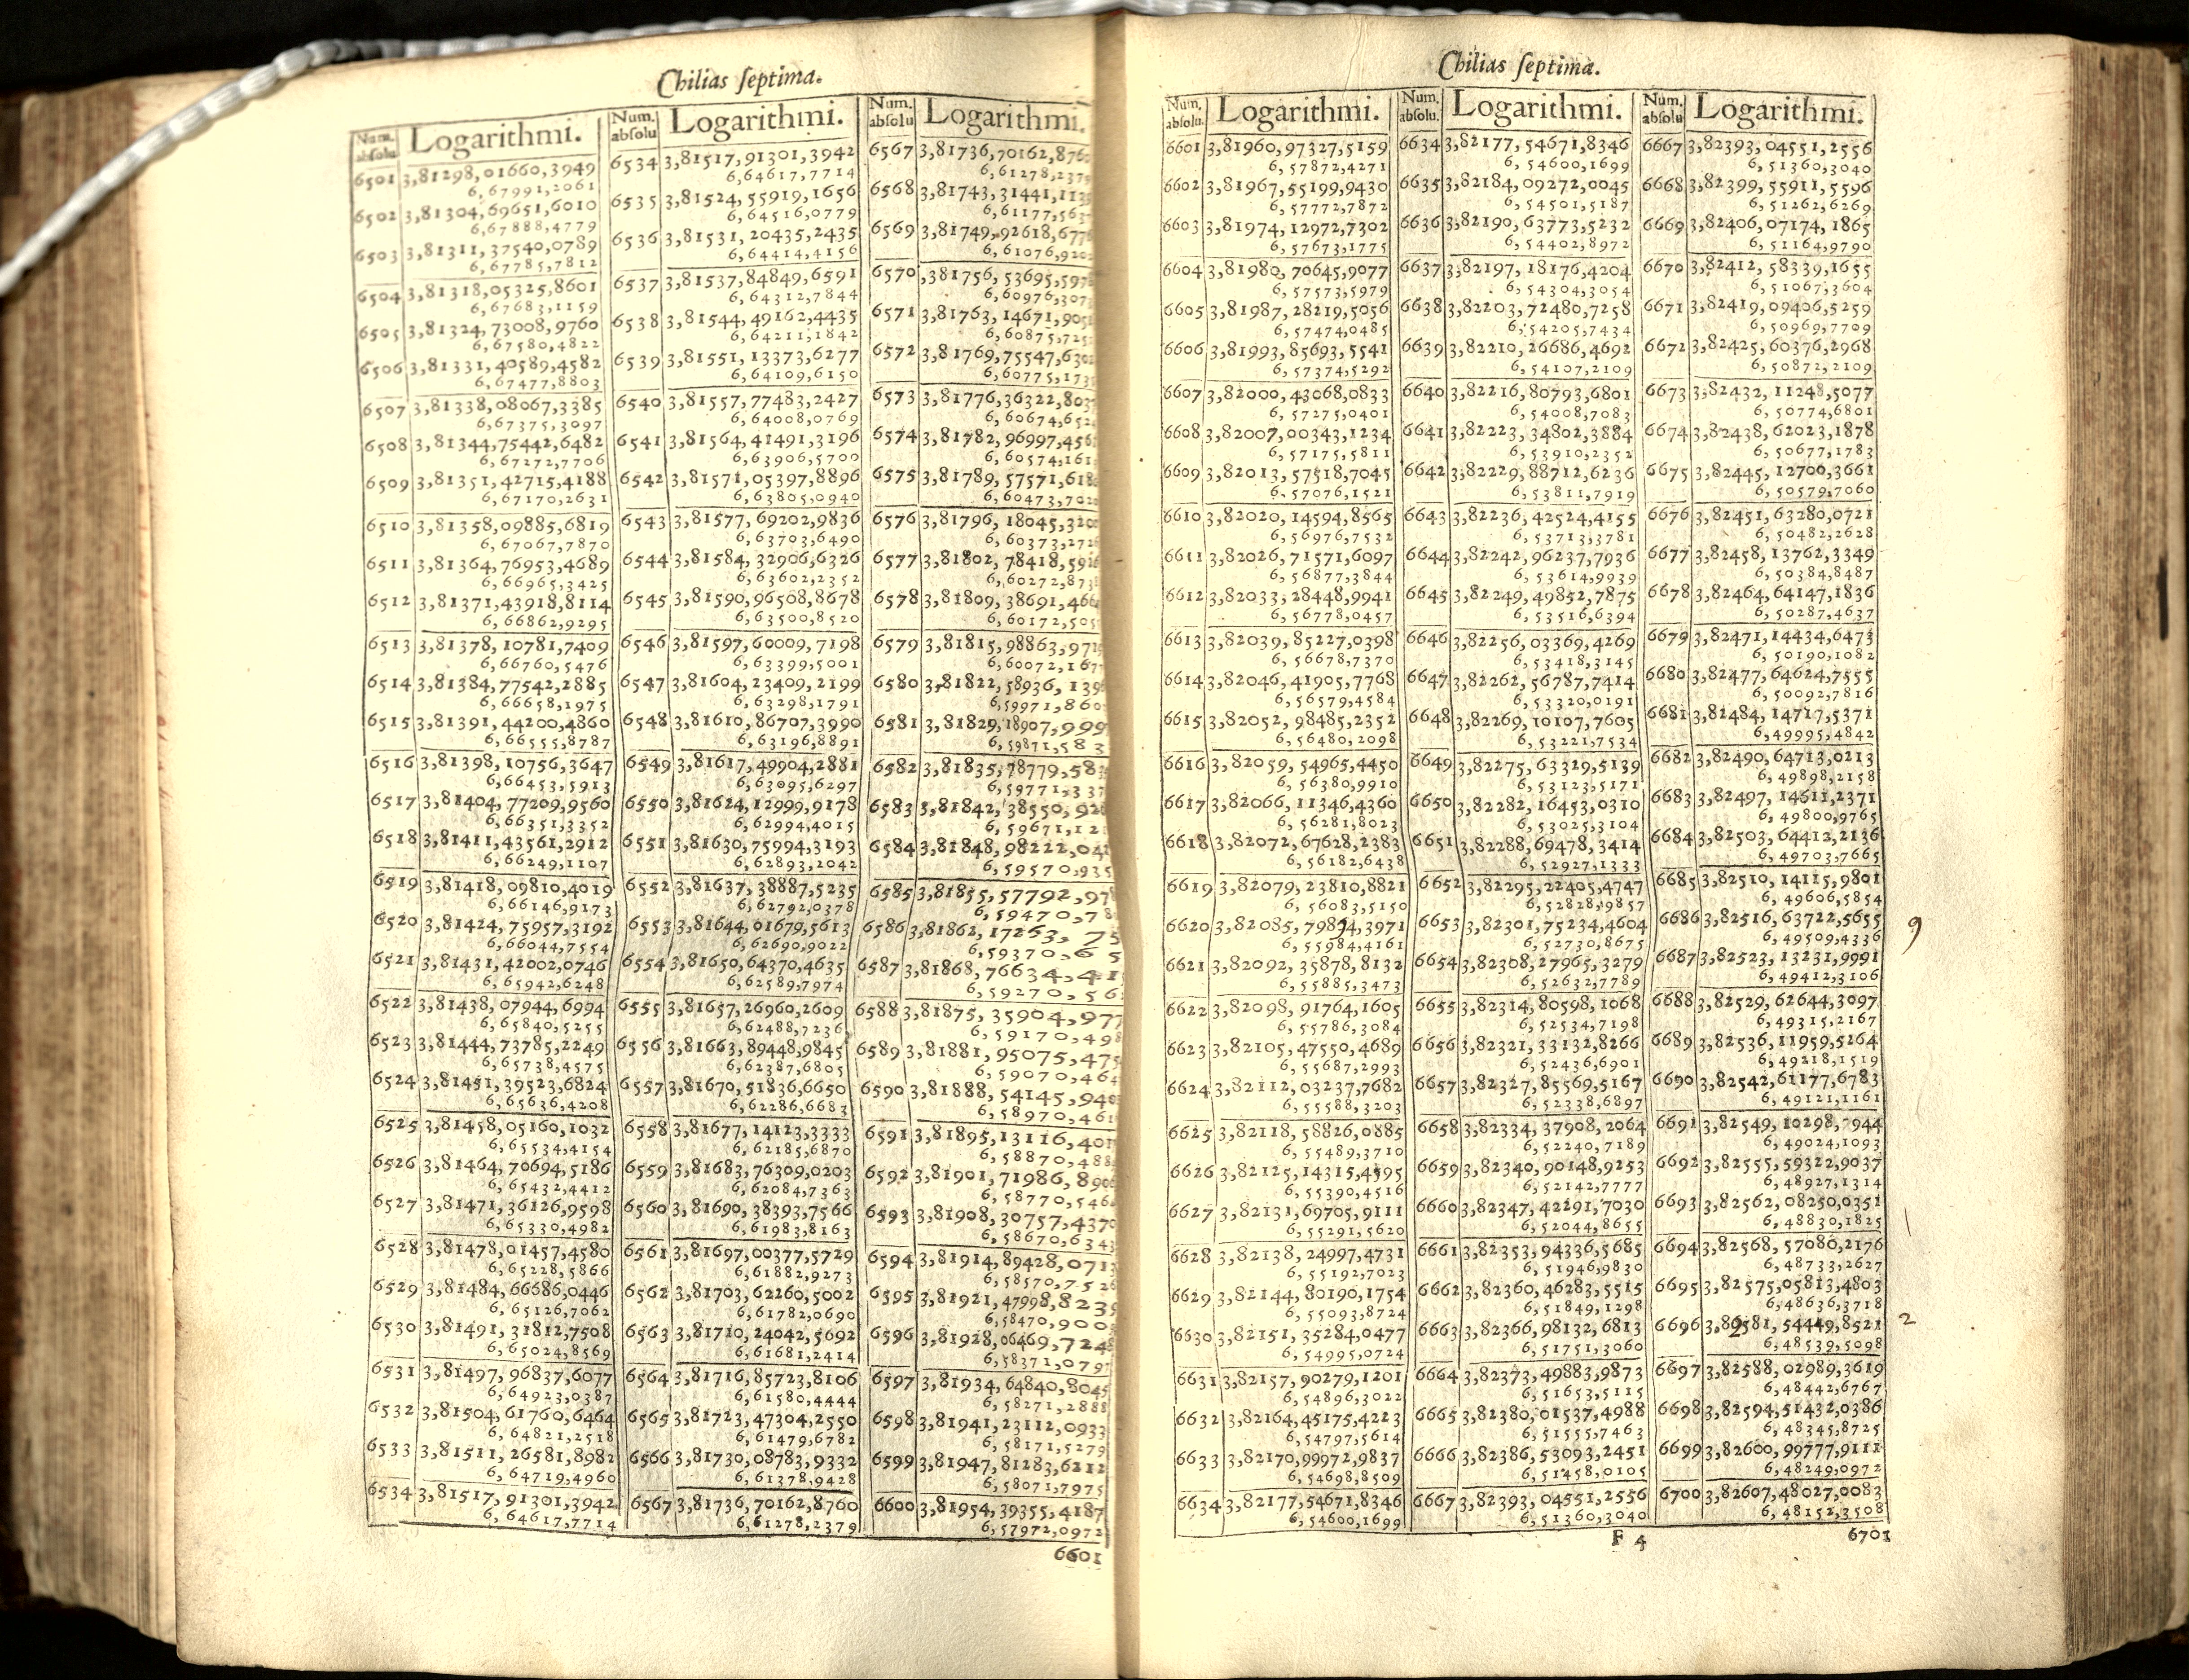 Chilias septima.
Num. absolu Logarithmi.
6501 3,81298,01660,3949
6,67991,2061
6502 3,81304,69651,6010
6,67888,4779
6503 3,81311,37540,0789
6,67785,7812
6504 3,81318,05325,8601
6,67683,1159
6505 3,81324,73008,9760
6,67580,4822
6506 3,81331,40589,4582
6,67477,8803
6507 3,81338,08067,3385
6,67375,3097
6508 3,81344,75442,6482
6,67272,7706
6509 3,81351,42715,4188
6,67170,2631
6510 3,81358,09885,6819
6,67067,7870
6511 3,81364,76953,4689
6,66965,3425
6512 3,81371,43918,8114
6,66862,9295
6513 3,81378,10781,7409
6,66760,5476
6514 3,81384,77542,2885
6,66658,1975
6515 3,81391,44200,4860
6,66555,8787
6516 3,81398,10756,3647
6,66453,5913
6517 3,81404,77209,9560
6,66351,3352
6518 3,81411,43561,2912
6,66249,1107
6519 3,81418,09810,4019
6,66146,9173
6520 3,81424,75957,3192
6,66044,7554
6521 3,81431,42002,0746
6,65942,6248
6522 3,81438,07944,6994
6,65840,5255
6523 3,81444,73785,2249
6,65738,4575
6524 3,81451,39523,6824
6,65636,4208
6525 3,81458,05160,1032
6,65534,4154
6526 3,81464,70694,5186
6,65432,4412
6527 3,81471,36126,9598
6,65330,4982
6528 3,81478,01457,4580
6,65228,5866
6529 3,81484,66686,0446
6,65126,7062
6530 3,81491,31812,7508
6,65024,8569
6531 3,81497,96837,6077
6,64923,0387
6532 3,81504,61760,6464
6,64821,2518
6533 3,81511,26581,8982
6,64719,4960
6534 3,81517,91301,3942
6,64617,7714
Num. absolu Logarithmi.
6534 3,81517,91301,3942
6,64617,7714
6535 3,81524,55919,1656
6,64516,0779
6536 3,81531,20435,2435
6,64414,4156
6537 3,81537,84849,6591
6,64312,7844
6538 3,81544,49162,4435
6,64211,1842
6539 3,81551,13373,6277
6,64109,6150
6540 3,81557,77483,2427
6,64008,0769
6541 3,81564,41491,3196
6,63906,5700
6542 3,81571,05397,8896
6,63805,0940
6543 3,81577,69202,9836
6,63703,6490
6544 3,81584,32906,6326
6,63602,2352
6545 3,81590,96508,8678
6,63500,8520
6546 3,81597,60009,7198
6,63399,5001
6547 3,81604,23409,2199
6,63298,1791
6548 3,81610,86707,3990
6,63196,8891
6549 3,81617,49904,2881
6,63095,6297
6550 3,81624,12999,9178
6,62994,4015
6551 3,81630,75994,3193
6,62893,2042
6552 3,81637,38887,5235
6,62792,0378
6553 3,81644,01679,5613
6,62690,9022
6554 3,81650,64370,4635
6,62589,7974
6555 3,81657,26960,2609
6,62488,7236
6556 3,81663,89448,9845
6,62387,6805
6557 3,81670,51836,6650
6,62286,6683
6558 3,81677,14123,3333
6,62185,6870
6559 3,81683,76309,0203
6,62084,7363
6560 3,81690,38393,7566
6,61983,8163
6561 3,81697,00377,5729
6,61882,9273
6562 3,81703,62260,5002
6,61782,0690
6563 3,81710,24042,5692
6,61681,2414
6564 3,81716,85723,8106
6,61580,4444
6565 3,81723,47304,2550
6,61479,6782
6566 3,81730,08783,9332
6,61378,9428
6567 3,81736,70162,8760
6,61278,2379
Num. absolu Logarithmi.
6567 3,81736,70162,876
6,61278,237
6568 3,81743,31441,113
6,61177,563
6569 3,81749,92618,677
6,61076,920
6570 ,381756,53695,597
6,60976,307
6571 3,81763,14671,905
6,60875,725
6572 3,81769,75547,630
6,60775,173
6573 3,81776,36322,803
6,60674,652
6574 3,81782,96997,456
6,60574,161
6575 3,81789,57571,618
6,60473,702
6576 3,81796,18045,320
6,60373,272
6577 3,81802,78418,592
6,60272,873
6578 3,81809,38691,466
6,60172,505
6579 3,81815,98863,971
6,60072,167
6580 3,81822,58936,139
6,59971,860
6581 3,81829,18907,999
6,59871,583
6582 3,81835,78779,583
6,59771,337
6583 3,81842,38550,920
6,59671,12
6584 3,81848,98222,04
6,59570,935
6585 3,81855,57792,97
6,59470,78
6586 3,81862,17263,75
6,59370,65
6587 3,81868,76634,41
6,59270,56
6588 3,81875,35904,977
6,59170,498
6589 3,81881,95075,475
6,59070,464
6590 3,81888,54145,940
6,58970,461
6591 3,81895,13116,401
6,58870,488
6592 3,81901,71986,890
6,58770,546
6593 3,81908,30757,4370
6,58670,6343
6594 3,81914,89428,0713
6,58570,7526
6595 3,81921,47998,8239
6,58470,900
6596 3,81928,06469,7248
6,58371,079
6597 3,81934,64840,8045
6,58271,2888
6598 3,81941,23112,0933
6,58171,5279
6599 3,81947,81283,6212
6,58071,7975
6600 3,81954,39355,4187
6,57972,0972
6601
Chilias septima.
Num. absolu. Logarithmi.
6601 3,81960,97327,5159
6,57872,4271
6602 3,81967,55199,9430
6,57772,7872
6603 3,81974,12972,7302
6,57673,1775
6604 3,81980,70645,9077
6,57573,5979
6605 3,81987,28219,5056
6,57474,0485
6606 3,81993,85693,5541
6,57374,5292
6607 3,82000,43068,0833
6,57275,0401
6608 3,82007,00343,1234
6,57175,5811
6609 3,82013,57518,7045
6,57076,1521
6610 3,82020,14594,8565
6,56976,7532
6611 3,82026,71571,6097
6,56877,3844
6612 3,82033,28448,9941
6,56778,0457
6613 3,82039,85227,0398
6,56678,7370
6614 3,82046,41905,7768
6,56579,4584
6615 3,82052,98485,2352
6,56480,2098
6616 3,82059,54965,4450
6,56380,9910
6617 3,82066,11346,4360
6,56281,8023
6618 3,82072,67628,2383
6,56182,6438
6619 3,82079,23810,8821
6,56083,5150
6620 3,82085,79894,3971
6,55984,4161
6621 3,82092,35878,8132
6,55885,3473
6622 3,82098,91764,1605
6,55786,3084
6623 3,82105,47550,4689
6,55687,2993
6624 3,82112,03237,7682
6,55588,3203
6625 3,82118,58826,0885
6,55489,3710
6626 3,82125,14315,4595
6,55390,4516
6627 3,82131,69705,9111
6,55291,5620
6628 3,82138,24997,4731
6,55192,7023
6629 3,82144,80190,1754
6,55093,8724
6630 3,82151,35284,0477
6,54995,0724
6631 3,82157,90279,1201
6,54896,3022
6632 3,82164,45175,4223
6,54797,5614
6633 3,82170,99972,9837
6,54698,8509
6634 3,82177,54671,8346
6,54600,1699
Num. absolu. Logarithmi.
6634 3,82177,54671,8346
6,54600,1699
6635 3,82184,09272,0045
6,54501,5187
6636 3,82190,63773,5232
6,54402,8972
6637 3,82197,18176,4204
6,54304,3054
6638 3,82203,72480,7258
6,54205,7434
6639 3,82210,26686,4692
6,54107,2109
6640 3,82216,80793,6801
6,54008,7083
6641 3,82223,34802,3884
6,53910,2352
6642 3,82229,88712,6236
6,53811,7919
6643 3,82236,42524,4155
6,53713,3781
6644 3,82242,96237,7936
6,53614,9939
6645 3,82249,49852,7875
6,53516,6394
6646 3,82256,03369,4269
6,53418,3145
6647 3,82262,56787,7414
6,53320,0191
6648 3,82269,10107,7605
6,53221,7534
6649 3,82275,63329,5139
6,53123,5171
6650 3,82282,16453,0310
6,53025,3104
6651 3,82288,69478,3414
6,52927,1333
6652 3,82295,22405,4747
6,52828,9857
6653 3,82301,75234,4604
6,52730,8675
6654 3,82308,27965,3279
6,52632,7789
6655 3,82314,80598,1068
6,52534,7198
6656 3,82321,33132,8266
6,52436,6901
6657 3,82327,85569,5167
6,52338,6897
6658 3,82334,37908,2064
6,52240,7189
6659 3,82340,90148,9253
6,52142,7777
6660 3,82347,42291,7030
6,52044,8655
6661 3,82353,94336,5685
6,51946,9830
6662 3,82360,46283,5515
6,51849,1298
6663 3,82366,98132,6813
6,51751,3060
6664 3,82373,49883,9873
6,51653,5115
6665 3,82380,01537,4988
6,51555,7463
6666 3,82386,53093,2451
6,51458,0105
6667 3,82393,04551,2556
6,51360,3040
Num. absolu Logarithmi.
6667 3,82393,04551,2556
6,51360,3040
6668 3,82399,55911,5596
6,51262,6269
6669 3,82406,07174,1865
6,51164,9790
6670 3,82412,58339,1655
6,51067,3604
6671 3,82419,09406,5259
6,50969,7709
6672 3,82425,60376,2968
6,50872,2109
6673 3,82432,11248,5077
6,50774,6801
6674 3,82438,62023,1878
6,50677,1783
6675 3,82445,12700,3661
6,50579,7060
6676 3,82451,63280,0721
6,50482,2628
6677 3,82458,13762,3349
6,50384,8487
6678 3,82464,64147,1836
6,50287,4637
6679 3,82471,14434,6473
6,50190,1082
6680 3,82477,64624,7555
6,50092,7816
6681 3,82484,14717,5371
6,49995,4842
6682 3,82490,64713,0213
6,49898,2158
6683 3,82497,14611,2371
6,49800,9765
6684 3,82503,64412,2136
6,49703,7665
6685 3,82510,14115,9801
6,49606,5854
6686 3,82516,63722,5655
6,49509,4336
9
6687 3,82523,13231,9991
6,49412,3106
6688 3,82529,62644,3097
6,49315,2167
6689 3,82536,11959,5264
6,49218,1519
6690 3,82542,61177,6783
6,49121,1161
6691 3,82549,10298,7944
6,49024,1093
6692 3,82555,59322,9037
6,48927,1314
6693 3,82562,08250,0351
6,48830,1825
6694 3,82568,57080,2176
6,48733,2627
6695 3,82575,05813,4803
6,48636,3718
6696 3,82581,54449,8521
2
6,48539,5098
6697 3,82588,02989,3619
6,48442,6767
6698 3,82594,51432,0386
6,48345,8725
6699 3,82600,99777,9111
6,48249,0972
6700 3,82607,48027,0083
6,48152,3508
F 4
6701